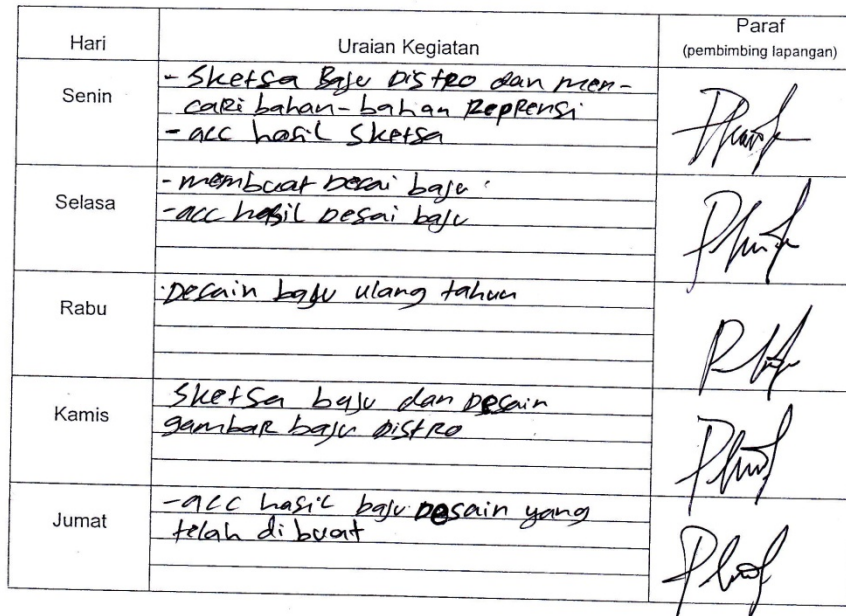 Hari
Uraian Kegiatan
Paraf
(pembimbing lapangan)
Senin
- Sketsa Baju Distro dan men-
cari bahan-bahan Reprensi
- acc hasil Sketsa
Selasa
- membuat Desai baju
- acc hasil Desai baju
Rabu
Desain baju ulang tahun
Kamis
Sketsa baju dan Desain
gambar baju Distro
Jumat
- acc hasil baju Desain yang
telah di buat